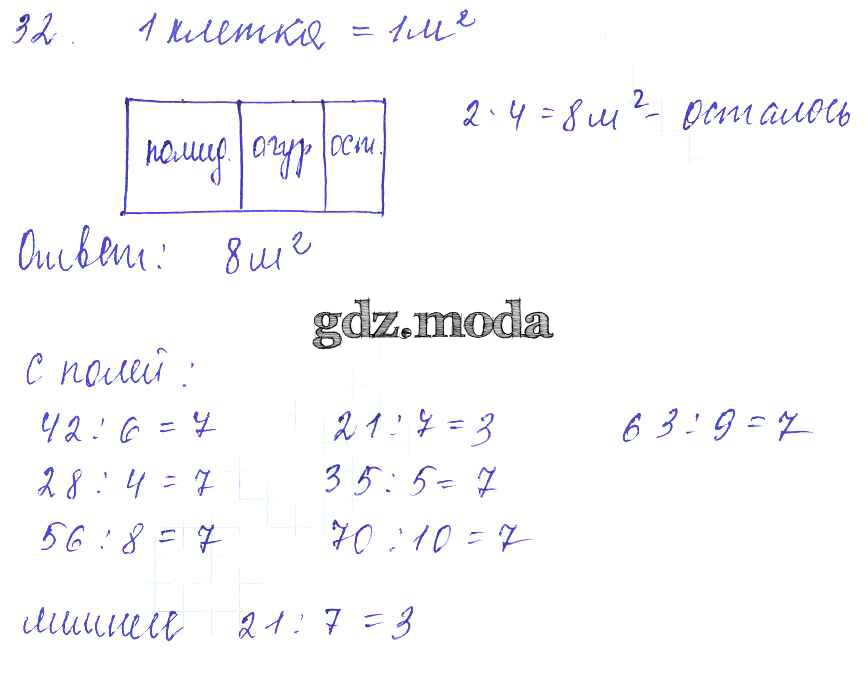 32. 1 клетка = 1м²
помид. огур ост.
2 · 4 = 8 м² - осталось
Ответ: 8 м²
gdz.moda
С полей:
42 : 6 = 7 21 : 7 = 3 63 : 9 = 7
28 : 4 = 7 35 : 5 = 7
56 : 8 = 7 70 : 10 = 7
лишнее 21 : 7 = 3